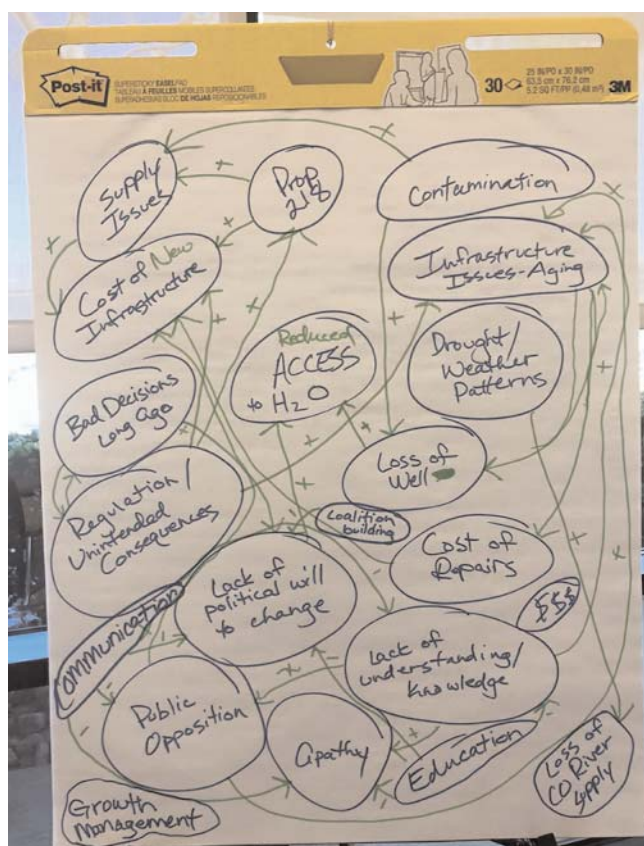 Post-it
SUPERSTICKY EASEL PAD
TABLEAU À FEUILLES MOBILES SUPERCOLLANTES
SUPERADHESIVAS BLOC DE HOJAS REPOSICIONABLES
30
25 IN/PO x 30 IN/PO
63,5 cm x 76,2 cm
5.2 SQ FT/PP (0,48 m²)
3M
Supply
Issues
Prop
218
Contamination
Cost of New
Infrastructure
Infrastructure
Issues-Aging
Reduced
ACCESS
to H2O
Drought/
Weather
Patterns
Bad Decisions
Long Ago
Loss of
Well
Regulation/
Unintended
Consequences
Coalition
building
Cost of
Repairs
Lack of
political will
to change
$$$
Communication
Lack of
understanding/
knowledge
Public
Opposition
Apathy
Education
Loss of
CO River
Supply
Growth
Management